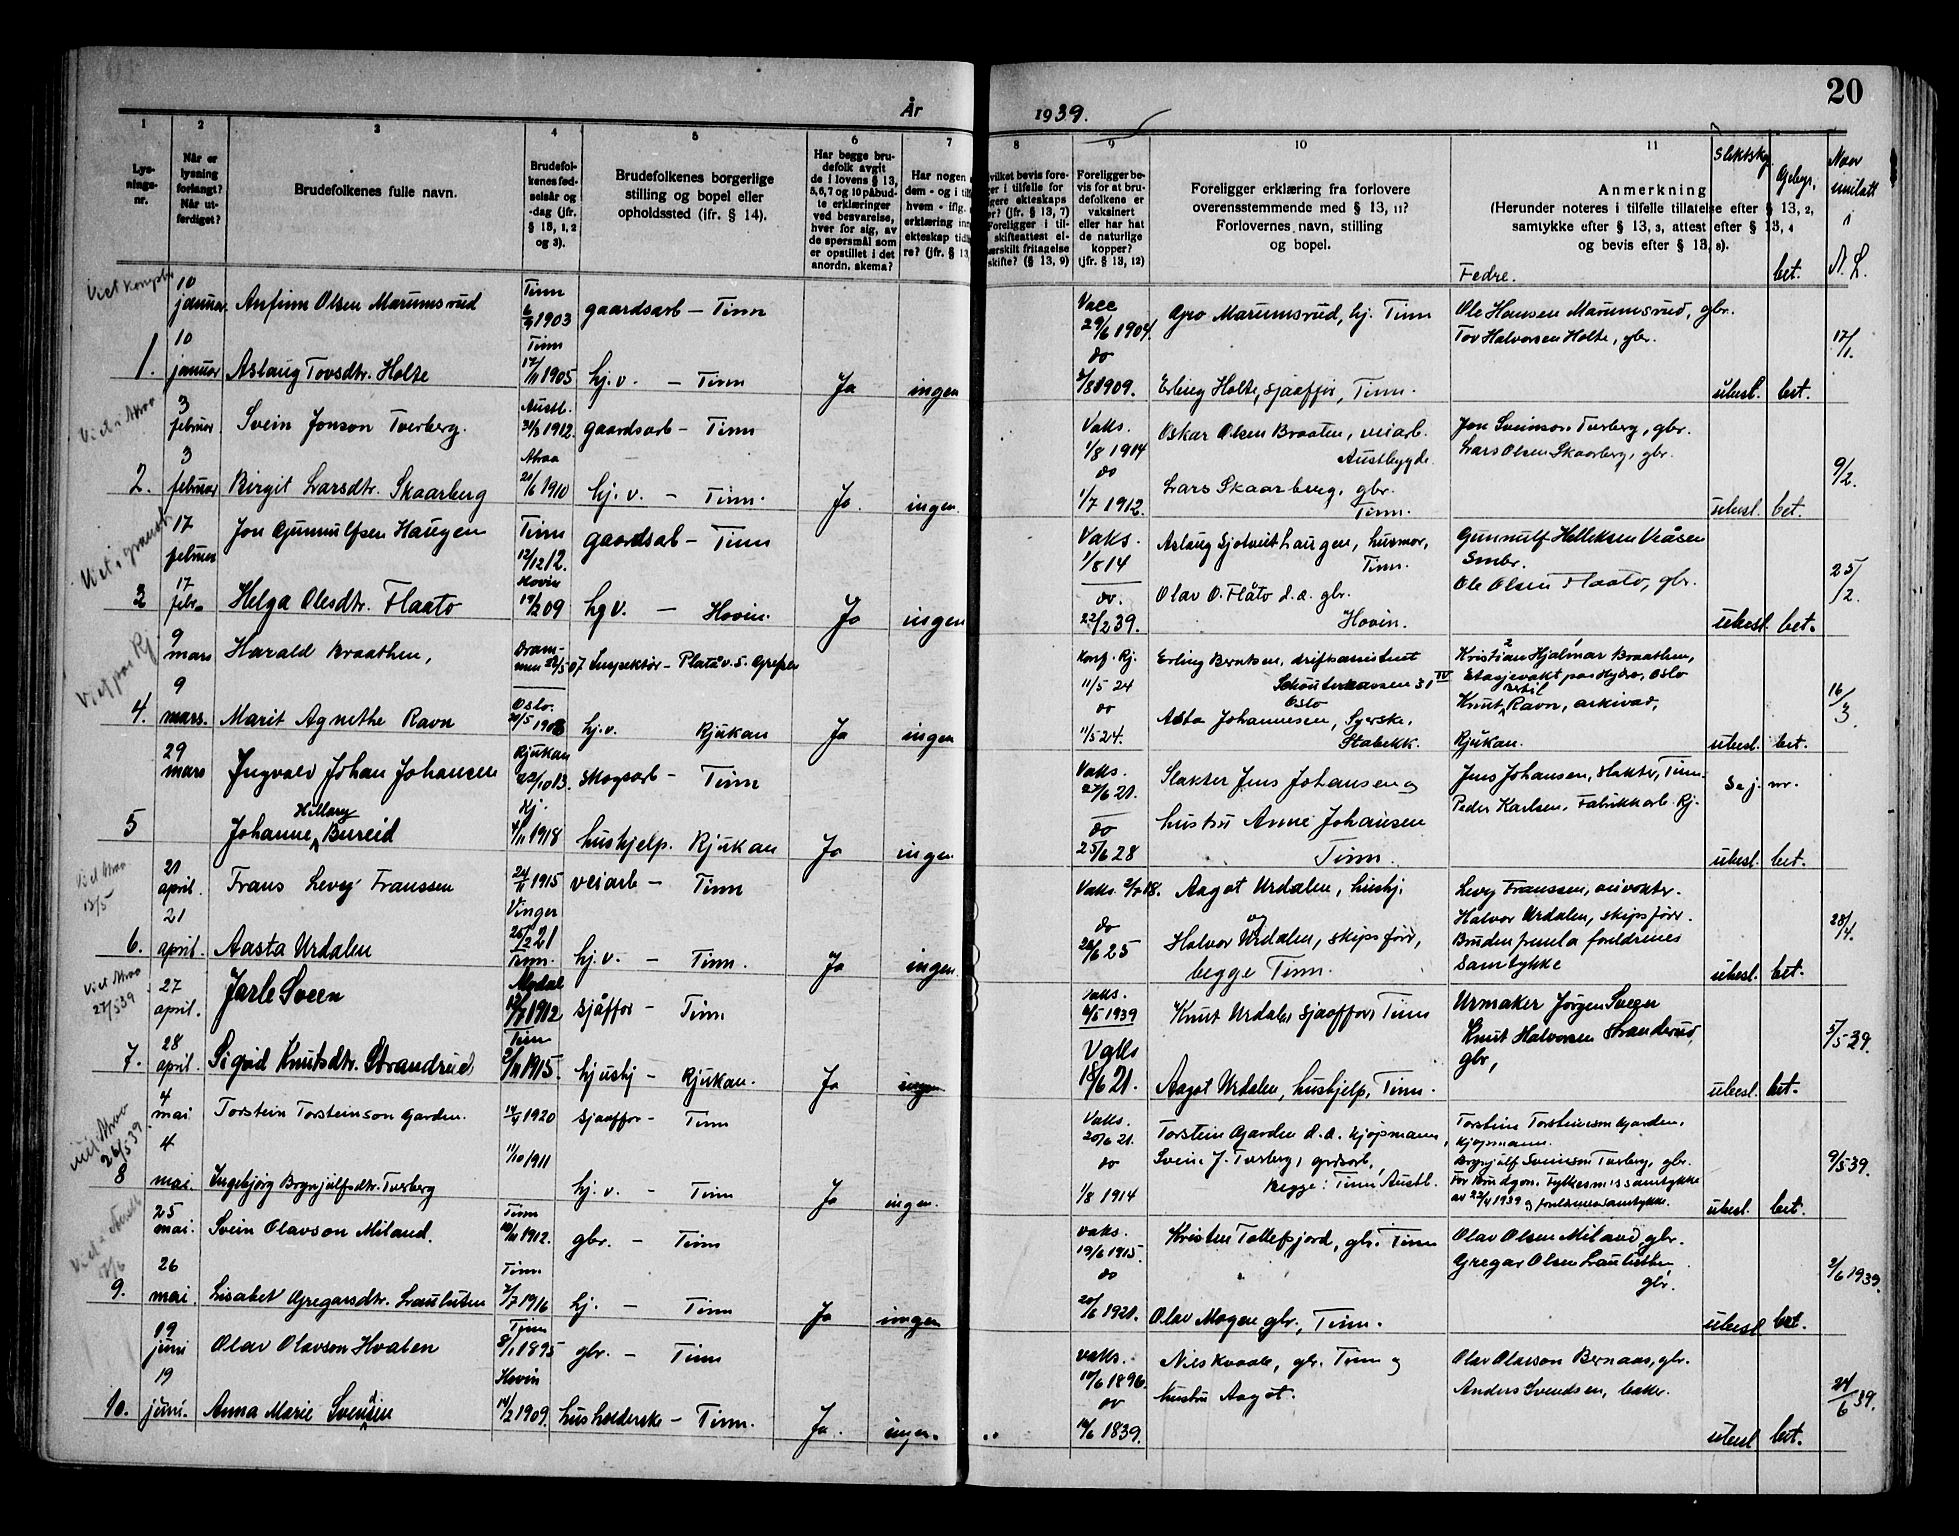 20
År 1939.
1 2 3 4 5 6 7 8 9 10 11
Lys-
nings-
nr.
Når er
lysning
forlangt?
Når ut-
ferdiget?
Brudefolkenes fulle navn.
Brudefol-
kenes fød-
selsår og
-dag (jfr.
§ 13, 1, 2
og 3).
Brudefolkenes borgerlige
stilling og bopel eller
opholdssted (jfr. § 14).
Har begge bru-
defolk avgit
de i lovens § 13,
5, 6, 7 og 10 påbud-
te erklæringer
ved besvarelse,
hver for sig, av
de spørsmål som
er opstillet i det
anordn. skema?
Har nogen
dem - og i tilf
hvem - iflg.
erklæring inn
ekteskap tid
re? (jfr. § 13,
vilket bevis fore-
ger i tilfelle for
gere ekteskaps
r? (jfr. § 13, 7)
Foreligger i til-
skifteattest el-
ærskilt fritagelse
skifte? (§ 13, 9)
Foreligger be-
vis for at bru-
defolkene er
vaksinert
eller har hat
de naturlige
kopper?
(jfr. § 13, 12)
Foreligger erklæring fra forlovere
overensstemmende med § 13, 11?
Forlovernes navn, stilling
og bopel.
Anmerkning
(Herunder noteres i tilfelle tillatelse efter § 13, 2,
samtykke efter § 13, 3, attest efter § 13, 4
og bevis efter § 13, 8).
Fedre.
Slektsk.
Gebyr.
bet.
Naar
utsilatt
i
N. L.
10 januar Anfinn Olsen Marumsrud Tinn 6/9 1903 gaardsarb - Tinn Vacc 29/6 1904. Gro Marumsrud, hj. Tinn Ole Hansen Marumsrud, gbr.
Tov Halvorsen Holte, gbr. 12/1.
1. 10 januar Aslaug Tovsdtr. Holte Tinn 17/11 1905 hj.v. - Tinn Ja ingen do /8 1909. Erling Holte, sjaaffør, Tinn. ubesl. bet.
Viet i Atraa
3 februar Svein Jonson Tverberg. Austb. 1912. gaardsarb - Tinn Vaks. 1/8 1914 Oskar Olsen Braaten, veiarb. Jon Sveinson Tverberg, gbr.
Austbygde. Lars Olsen Skaarberg, gbr.
2. 3 februar Birgit Larsdtr. Skaarberg Atraa 21/6 1910 hj.v. - Tinn. Ja. ingen do 1/7 1912. Lars Skaarberg, gbr. ubesl. bet. 9/2.
Tinn.
17 februar Jon Gunnulfsen Haugen Tinn 12/12 12. gaardsab - Tinn Vaks. 1/8 14 Aslaug Sjotveit Haugen, husmor, Gunnulf Helleksen Veåsen
Tinn. Smbr.
3 17 febr. Helga Olesdtr. Flaato Hovin 19/2 09 hgv. - Hovin. Ja ingen do. 22/2 39. Olav O. Flåto d.a. gbr. Ole Olsen Flaato, gbr. 25/2.
Hovin. ubesl. bet.
9 mars Harald Braathen, Dram-
men 07 Inspektør - Konf. Rj. 11/5 24 Erling Berntsen, driftsassistent Kristian Hjalmar Braathen,
Oslo Etasjevakt paa Hydro, Oslo
4. 9 mars. Marit Agnethe Ravn Oslo. hj.v. Rjukan Ja ingen do 11/5 24. Asta Johannesen, Syerske, Knut Ravn, arkivad, 16/3
Stabekk. Rjukan. ubesl. bet.
29 mars Ingvald Johan Johansen Rjukan 22/10 13. skogsarb - Tinn Vaks. 27/6 21. Slakter Jens Johansen og Jens Johansen, slakter, Tinn
Peder Karlsen, Fabrikkarb. Rj.
5 Johanne Hillary Bureid Rj. 4/11 1918 hushjelp. Rjukan Ja ingen do 25/6 28 hustru Anne Johansen
Tinn. ubesl. bet.
21 april. Frans Levy Franssen 24/11 1915 veiarb - Tinn Vaks. Aagot Urdalen, hushj. Levy Franssen,
og Halvor Urdalen, skipsfører.
6. 21 april. Aasta Urdalen Vinger 25/2 21 Tinn. hj.v. - Tinn. Ja ingen. do 26/6 25 Halvor Urdalen, skipsfør, Bruden foreldrenes 28/4.
begge Tinn. samtykke ubesl. bet.
Viet Atraa 27/5 39
27 april. Jarle Sveen 1912 sjåffør - Tinn Vaks. 1939 Knut Urdalen sjaaffør, Tinn Urmaker Jørgen Sveen
Knut Halvorsen Stranderud,
7. 28 april. Sigrid Knutsdtr. Strandrud Tinn 2/11 1915. hjushj - Rjukan. Ja ingen Vaks 18/6 21. Aagot Urdalen, hushjelp, Tinn. gbr, ubesl. bet. 5/5 39.
4 mai Torstein Torsteinson Garden. 1920 sjaaffør - Tinn Vaks. 20/6 21. Torstein Garden d.a. kjøpmann, Torstein Torsteinson Garden,
kjøpmann.
8 4 mai. Ingebjørg Brynjulfsdtr. Tverberg 11/10 1911 hj.v. - Tinn Ja ingen. do 1/8 1914 Svein J. Tverberg, grdsarb, Brynjulf Sveinson Tverberg, gbr. 9/5 39.
Begge: Tinn Austb. For Brudgom. Fylkesm's samtykke
av 22/4 1939 og foreldrenes samtykke. ubesl. bet.
25 mai. Svein Olavson Miland. Tinn 1912. gbr. - Tinn Vaks. 19/6 1915. Kristen Tollefsjord, gbr. Tinn Olav Olsen Miland, gbr.
Gregar Olsen
9. 26 mai. Lisabet Gregarsdtr. Tinn. 2/7 1916 hj. - Tinn Ja ingen do 20/6 1921. Olav Mogen, gbr., Tinn. gbr. ubesl bet. 2/6 1939.
19 juni Olav Olavson Hvalen Tinn 8/1 1895 gbr. - Tinn Vaks. 1896. Niels Kvaale, gbr. Tinn og Olav Olavson Bernaas, gbr.
10. 19 juni. Anna Marie Svendsen Hovin 14/2 1909. husholderske - Tinn. Ja. ingen. do 14/6 1839. hustru Aagot. Anders Svendsen, 24/6 39.
ubesl bet.